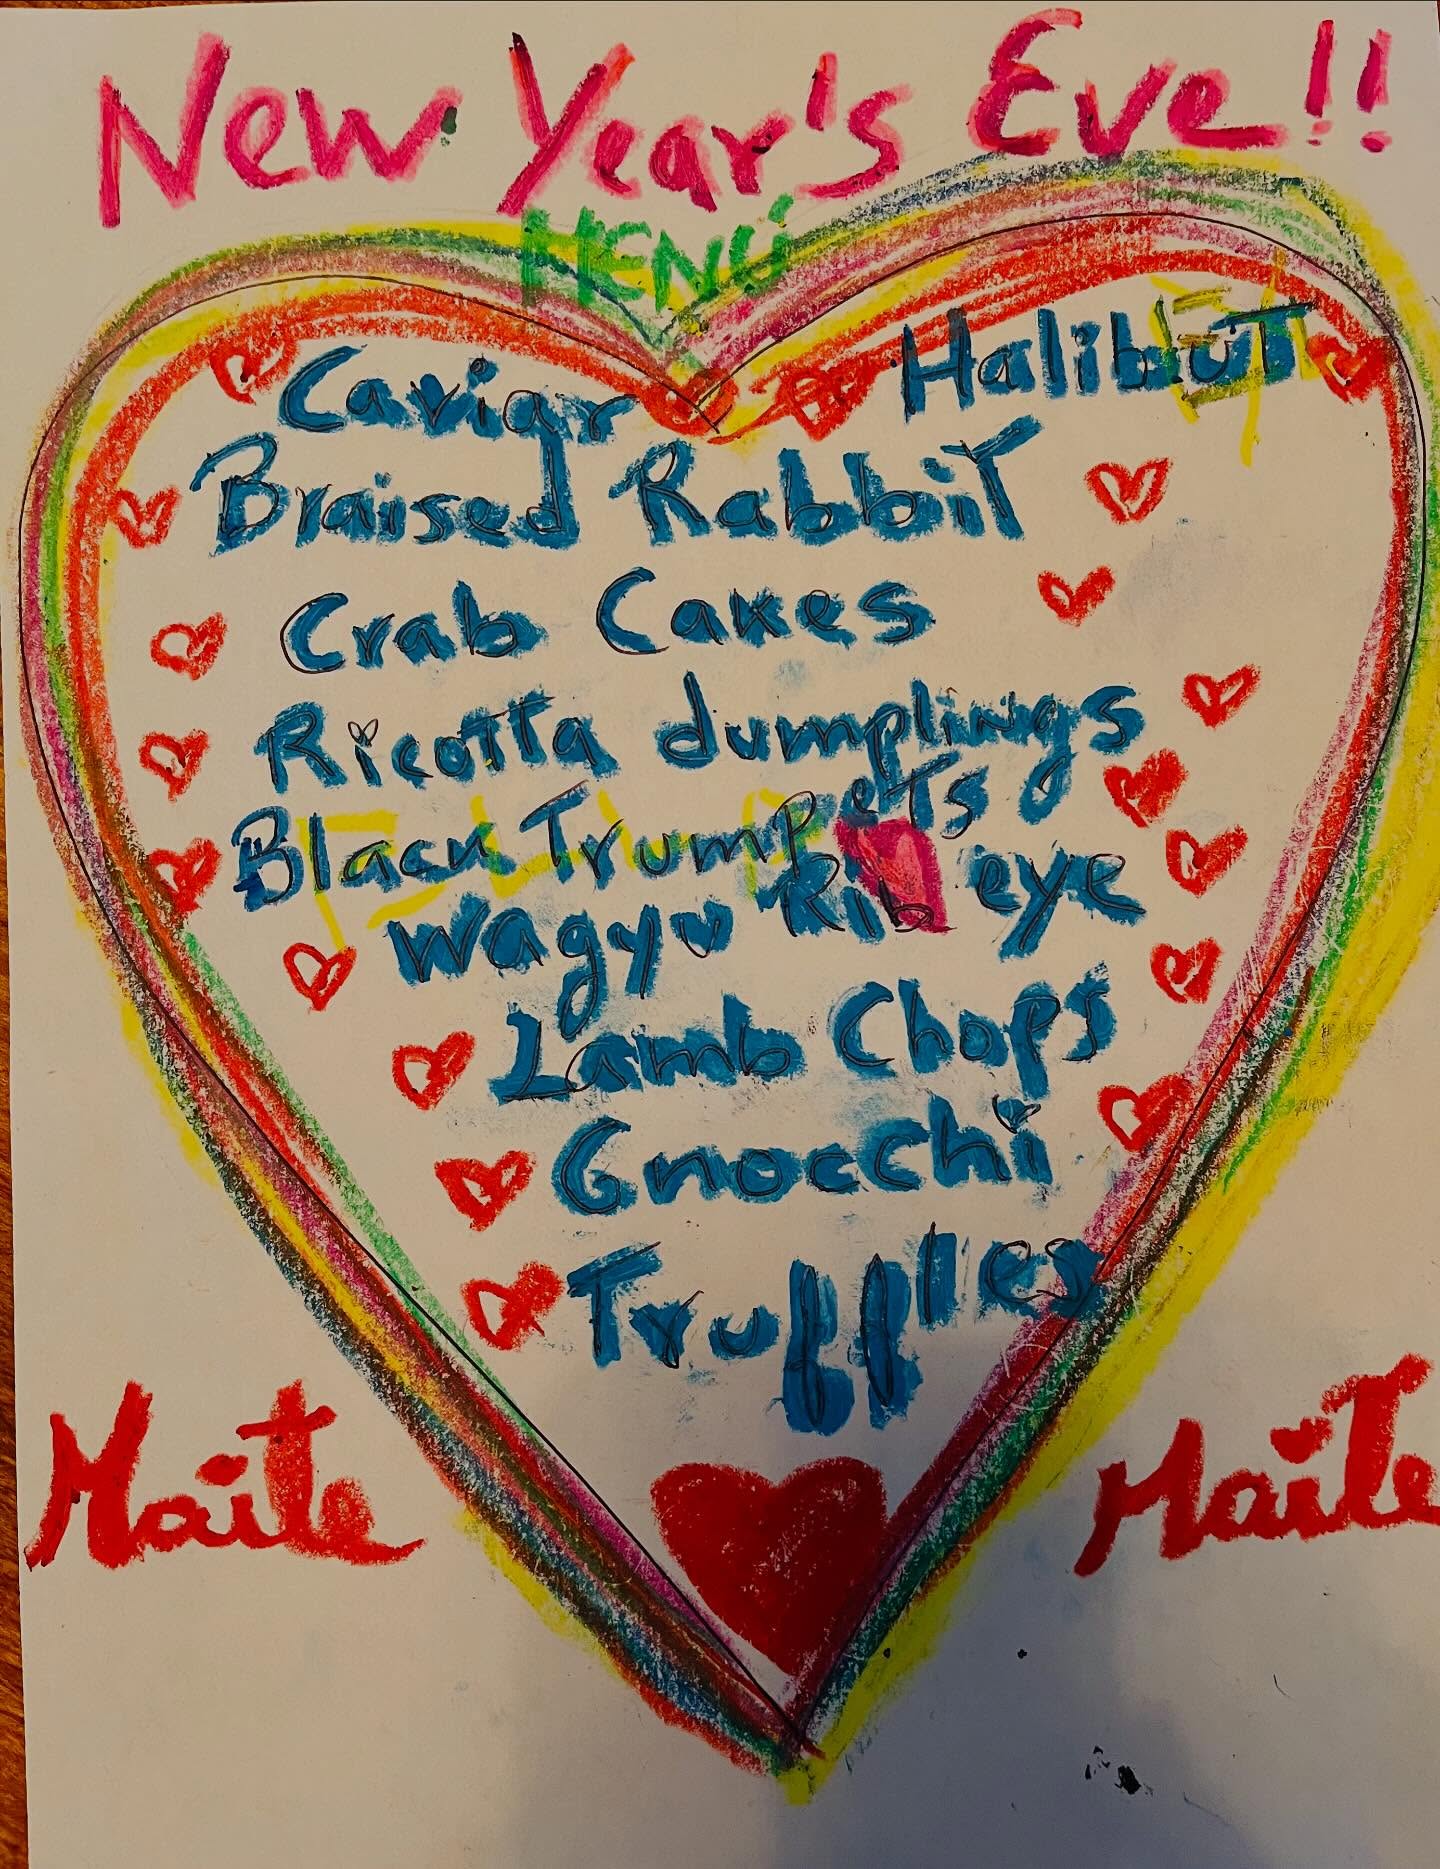 New Year's Eve!!
MENÚ
Caviar
Halibut
Braised Rabbit
Crab Cakes
Ricotta dumplings
Black Trumpets
Wagyu Rib eye
Lamb Chops
Gnocchi
Truffles
Maite
Maite